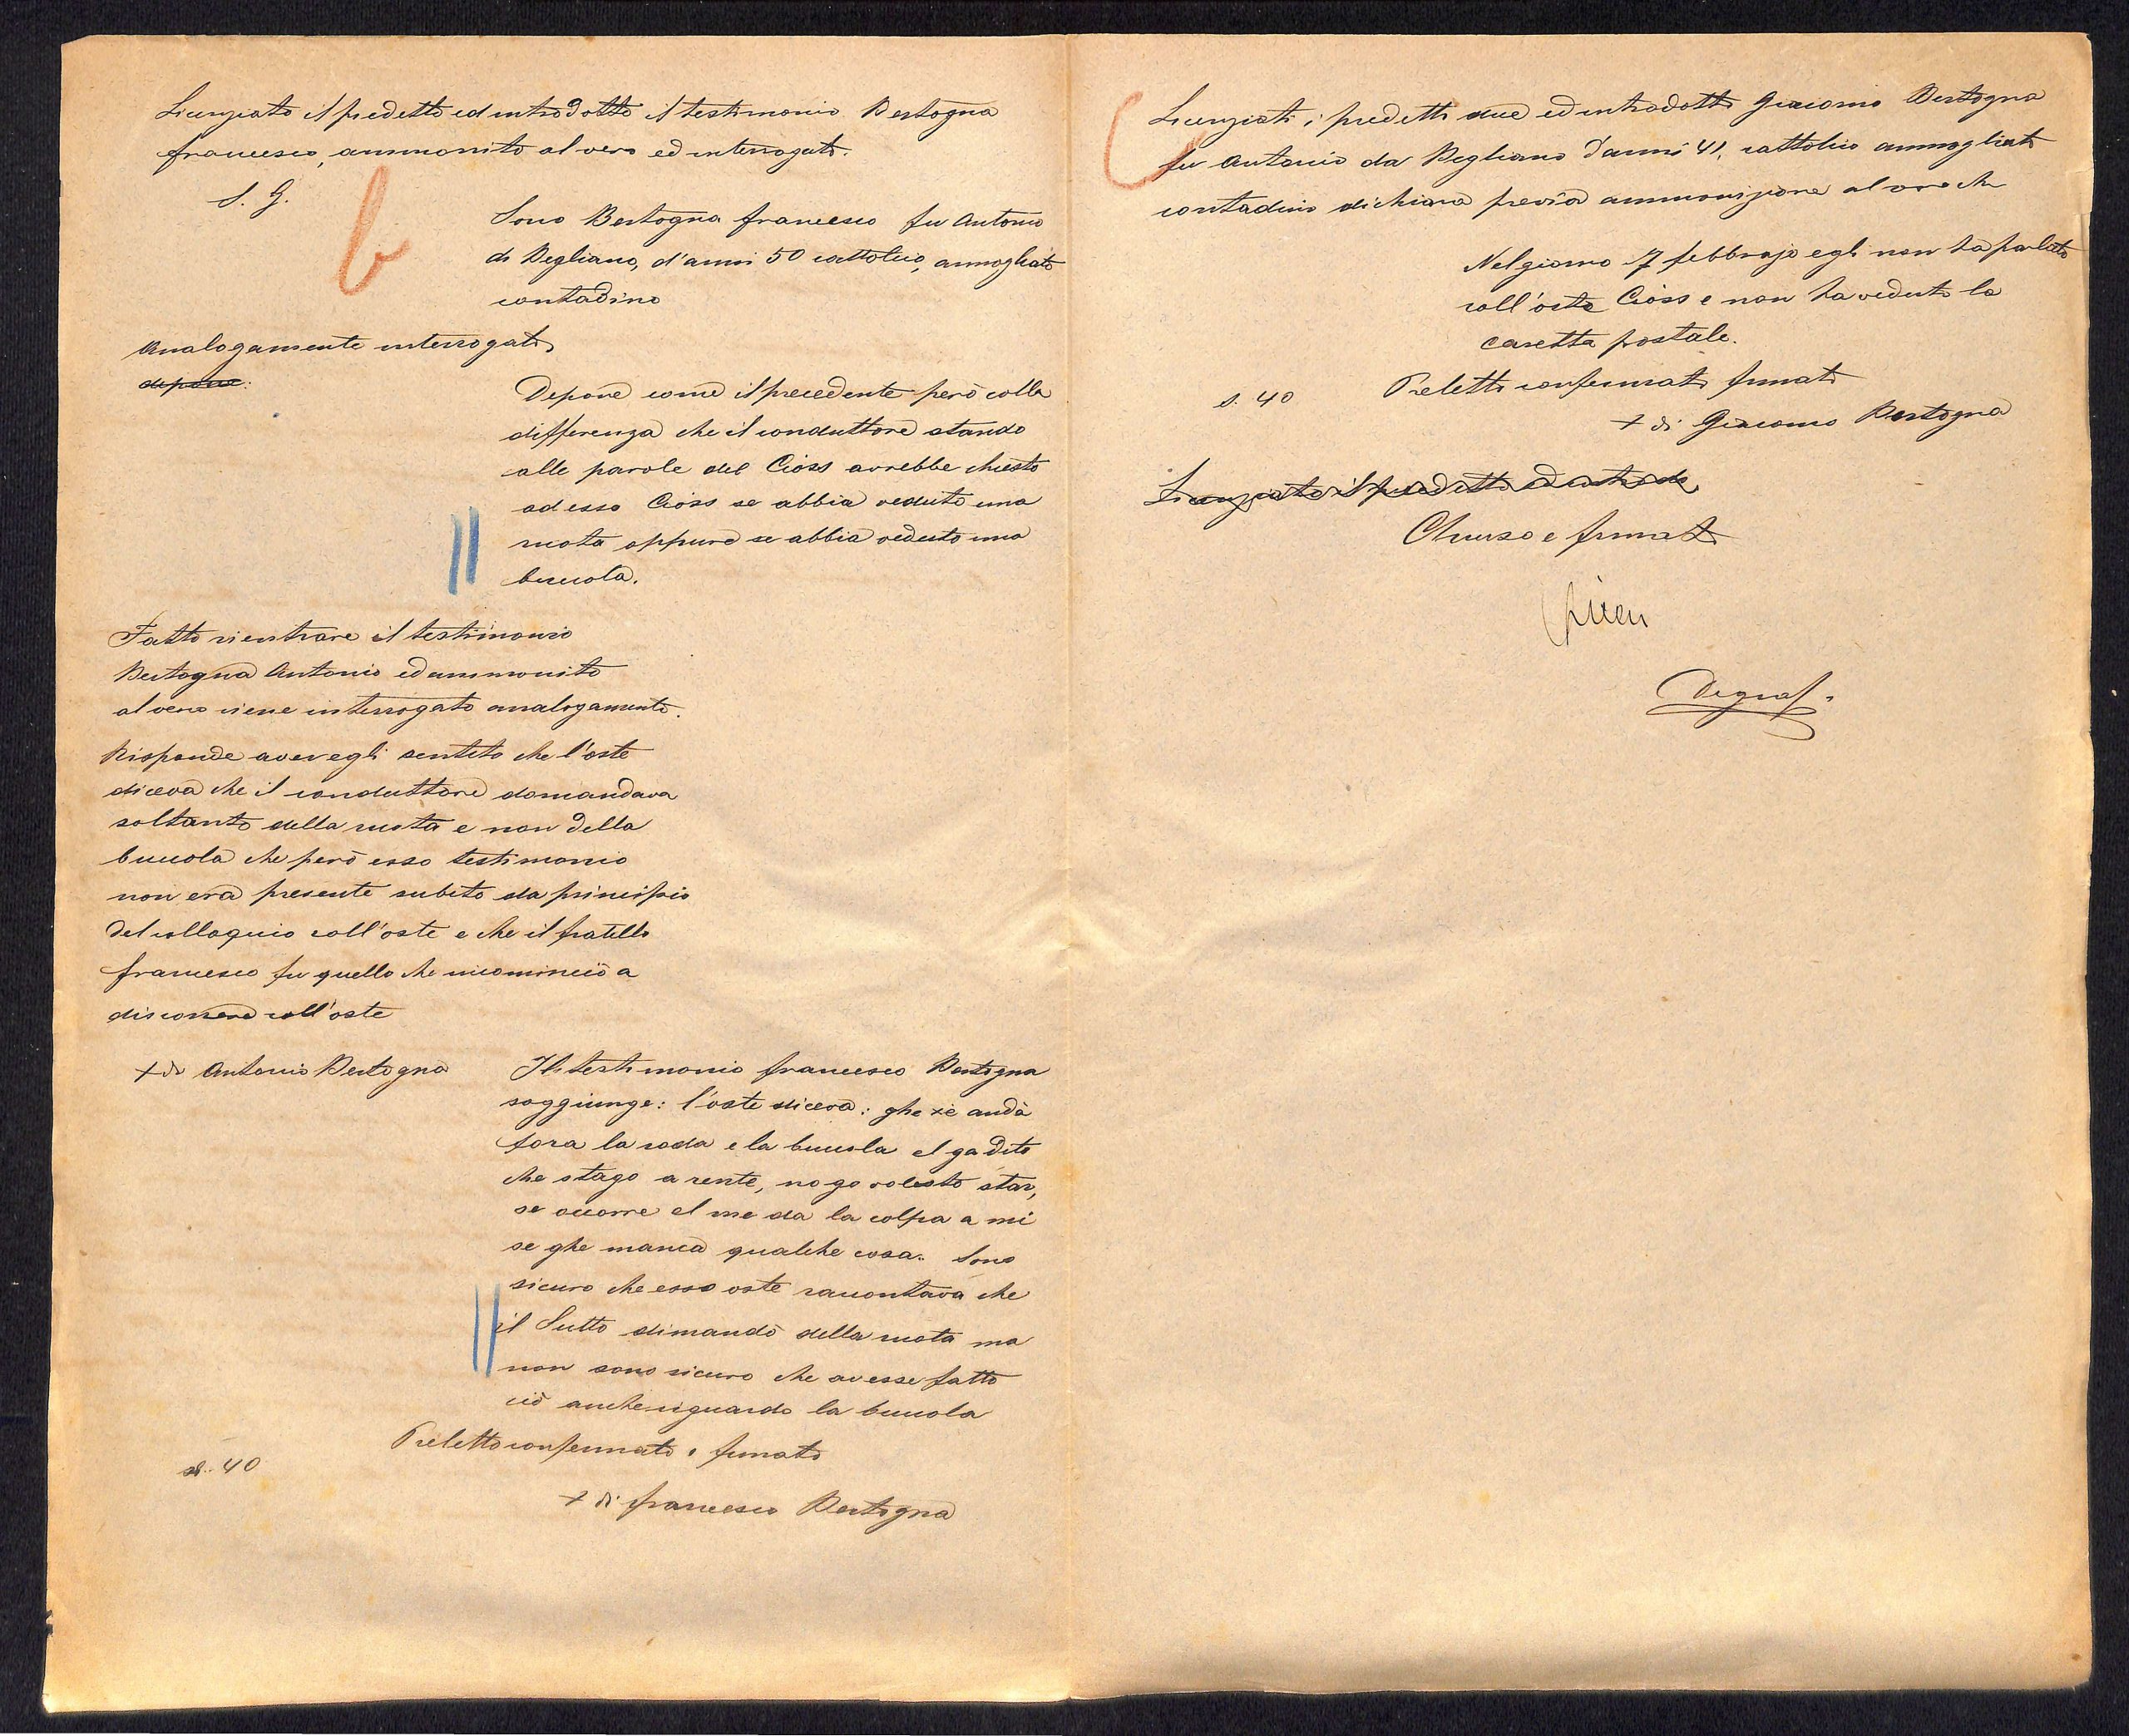 Licenziato il predetto ed introdotto il testimonio Bertogna
Francesco, ammonito al vero ed interrogato.
S. G.
b
Sono Bertogna Francesco fu Antonio
di Begliano, d'anni 50 cattolico, ammogliato
contadino
Analogamente interrogato
depone:
Depone come il precedente però colla
differenza che il conduttore stando
alle parole del Cioss avrebbe chiesto
ad esso Cioss se abbia veduto una
ruota oppure se abbia veduto una
buccola.
Fatto rientrare il testimonio
Bertogna Antonio ed ammonito
al vero viene interrogato analogamente.
Risponde aver egli sentito che l'oste
diceva che il conduttore domandava
soltanto della ruota e non della
buccola che però esso testimonio
non era presente subito da principio
del colloquio coll'oste e che il fratello
Francesco fu quello che incominciò a
discorrere coll'oste
+ di Antonio Bertogna
Il testimonio Francesco Bertogna
soggiunge: l'oste diceva: ghe xè andà
fora la roda e la buccola el ga dito
che stago a rente, no go volesto star,
se occorre el me da la colpa a mi
se ghe manca qualche cosa. Sono
sicuro che esso oste raccontava che
il Sutto dimandò della ruota ma
non sono sicuro che avesse fatto
ciò anche riguardo la buccola
Preletto confermato e firmato
s. 40
+ di Francesco Bertogna
Licenziati i predetti due ed introdotto Giacomo Bertogna
fu Antonio da Begliano d'anni 41, cattolico ammogliato
contadino dichiara previa ammonizione al vero che
Nel giorno 7 febbrajo egli non ha parlato
coll'oste Cioss e non ha veduto la
caretta postale.
s. 40
Preletto confermato firmato
+ di Giacomo Bertogna
Licenziato il predetto ed introdo
Chiuso e firmato